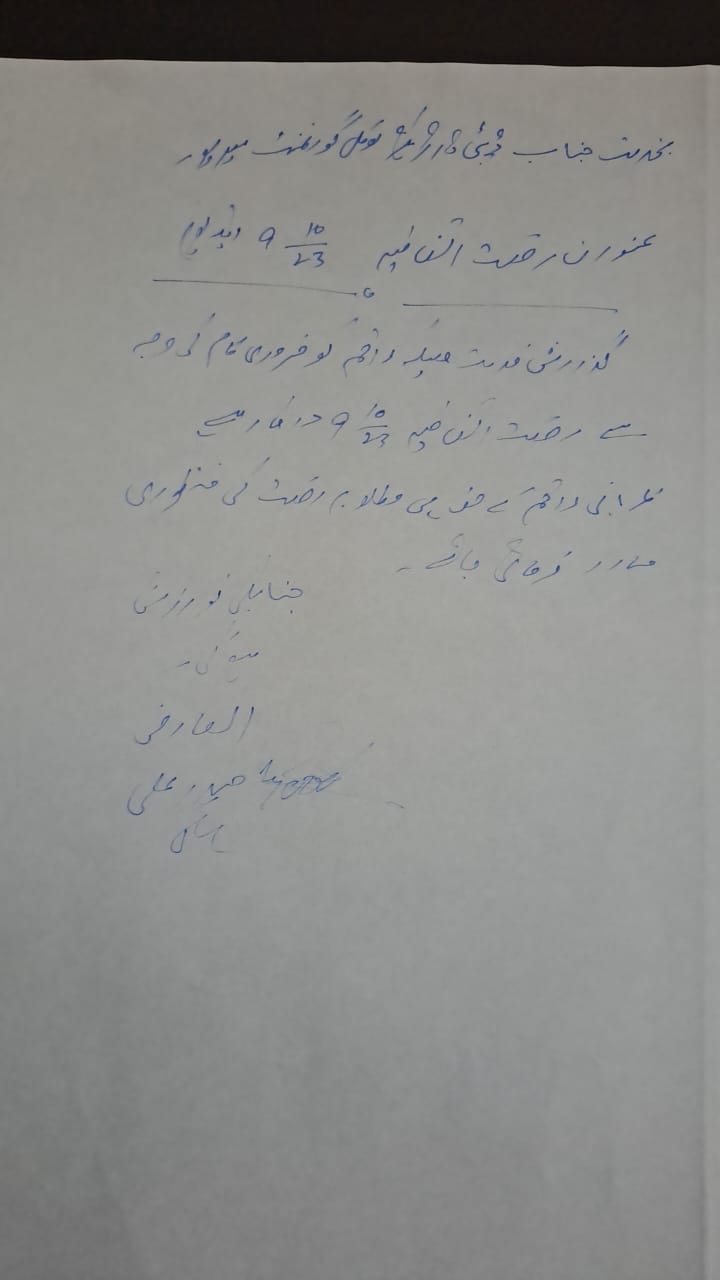 بخدمت جناب ڈپٹی ڈائریکٹر لوکل گورنمنٹ
عنوان رخصت اتفاقیہ 9 10/23
گذارش خدمت ہیکہ راقم کو ضروری کام کی وجہ
سے رخصت اتفاقیہ 9 10/23 درکار ہے
مہربانی راقم کے حق میں مطلوبہ رخصت کی منظوری
صادر فرمائی جائے۔
جنابکی نوازش
ہوگی۔
العارض
حیدر علی